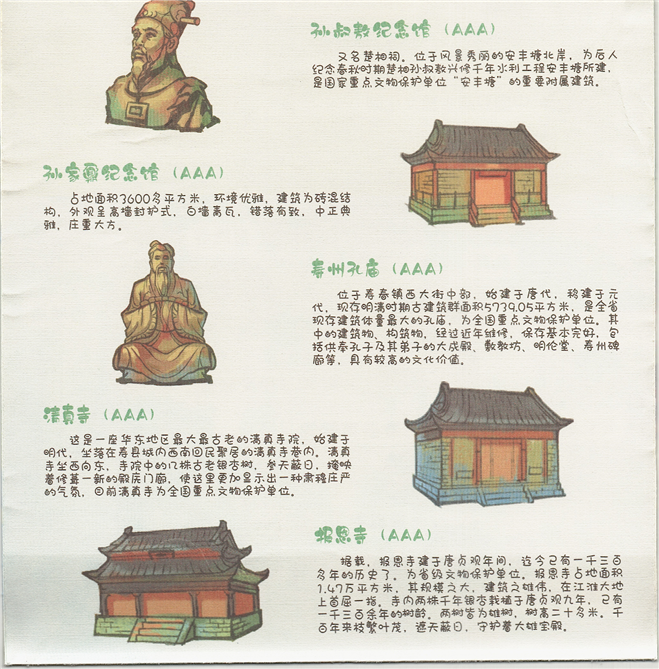 孙叔敖纪念馆（AAA）
又名楚相祠。位于风景秀丽的安丰塘北岸，为后人
纪念春秋时期楚相孙叔敖兴修千年水利工程安丰塘所建，
是国家重点文物保护单位“安丰塘”的重要附属建筑。
孙家鼐纪念馆（AAA）
占地面积3600多平方米，环境优雅，建筑为砖混结
构，外观呈高墙封护式，白墙青瓦，错落有致，中正典
雅，庄重大方。
寿州孔庙（AAA）
位于寿春镇西大街中部，始建于唐代，移建于元
代，现存明清时期古建筑群面积5739.05平方米，是全省
现存建筑体量最大的孔庙，为全国重点文物保护单位。其
中的建筑物、构筑物，经过近年维修，保存基本完好，包
括供奉孔子及其弟子的大成殿、敷教坊、明伦堂、寿州碑
廊等，具有较高的文化价值。
清真寺（AAA）
这是一座华东地区最大最古老的清真寺院，始建于
明代，坐落在寿县城内西南回民聚居的清真寺巷内。清真
寺坐西向东，寺院中的12株古老银杏树，参天蔽日，掩映
着修葺一新的殿房门廊，使这里更加显示出一种肃穆庄严
的气氛，目前清真寺为全国重点文物保护单位。
报恩寺（AAA）
据载，报恩寺建于唐贞观年间，迄今已有一千三百
多年的历史了。为省级文物保护单位。报恩寺占地面积
1.47万平方米，其规模之大，建筑之雄伟，在江淮大地
上首屈一指。寺内两株千年银杏栽植于唐贞观九年，已有
一千三百余年的树龄，两树皆为雄树，树高二十多米。千
百年来枝繁叶茂，遮天蔽日，守护着大雄宝殿。